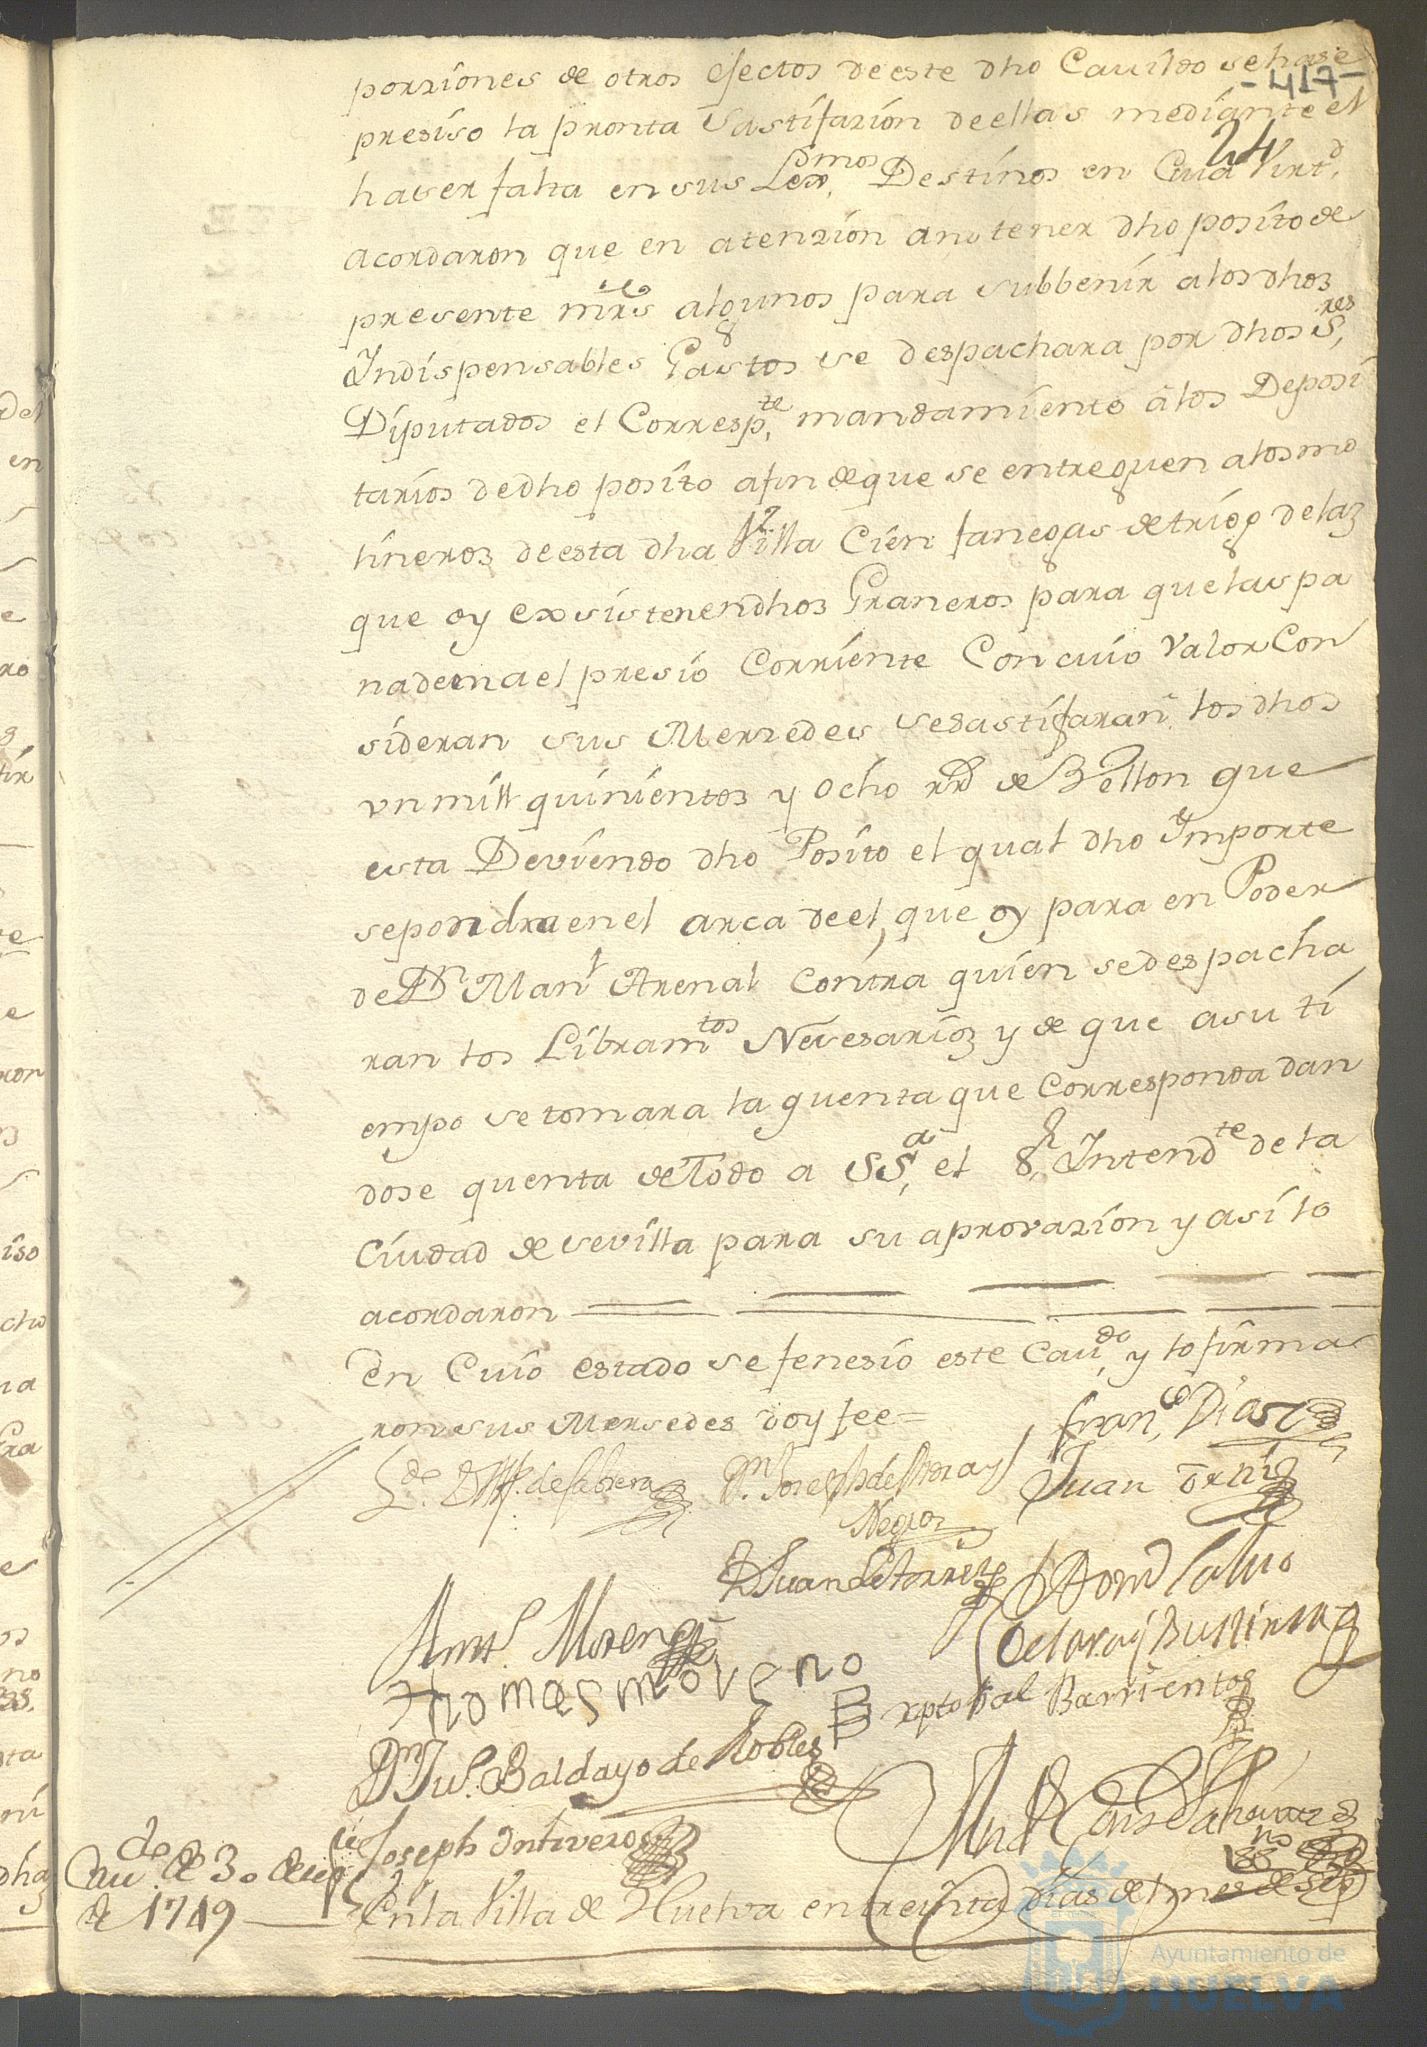 porziones de otros efectos de este dho Cauildo se hase
- 417 -
presiso la pronta Sastifazion de ellas mediante el
24
haser falta en sus Lexmos. Destinos en Cuia Virtd.
acordaron que en atenzion a no tener dho posito de
presente mrs algunos para subbenir a los dhos
Yndispensables Gastos se despachara por dhos Sres.
Diputados el Correspte. mandamiento a los Deposi
tarios de dho posito a fin de que se entreguen a los mo
lineros de esta dha Villa Cien fanegas de trigo de las
que oy exsisten en dhos Graneros para que las pa
nadeen a el presio Corriente Con cuio Valor Con
sideran sus Merzedes se sastifaran los dhos
vn mill quinientos y ocho rrs de Bellon que
esta Deviendo dho Posito el qual dho Ymporte
se pondra en el arca de el, que oy para en Poder
de Dn Manl Arenal Contra quien se despacha
ran los Libramtos Nesesarios y de que a su ti
empo se tomara la quenta que Corresponda dan
dose quenta de Todo a SSa. el Sr. Yntendte de la
Ciudad de Sevilla para su aprovazion y asi lo
acordaron
En Cuio estado se fenesio este Caudo. y lo firma
ron sus Mersedes doy fee =
Franco. Dias
Dn. Joseph de Mora y
Negron
Juan Orni
D Juan de Torres
Antt. Moreno
Thomas moreno
Xptobal Barrientos
Dn Ju. Baldayo de Robles
Joseph Ontiveros
Caudo. de 30 de sepe
de 1749
En la Villa de Huelva en treinta dias del mes de Sep
Ayuntamiento de
HUELVA